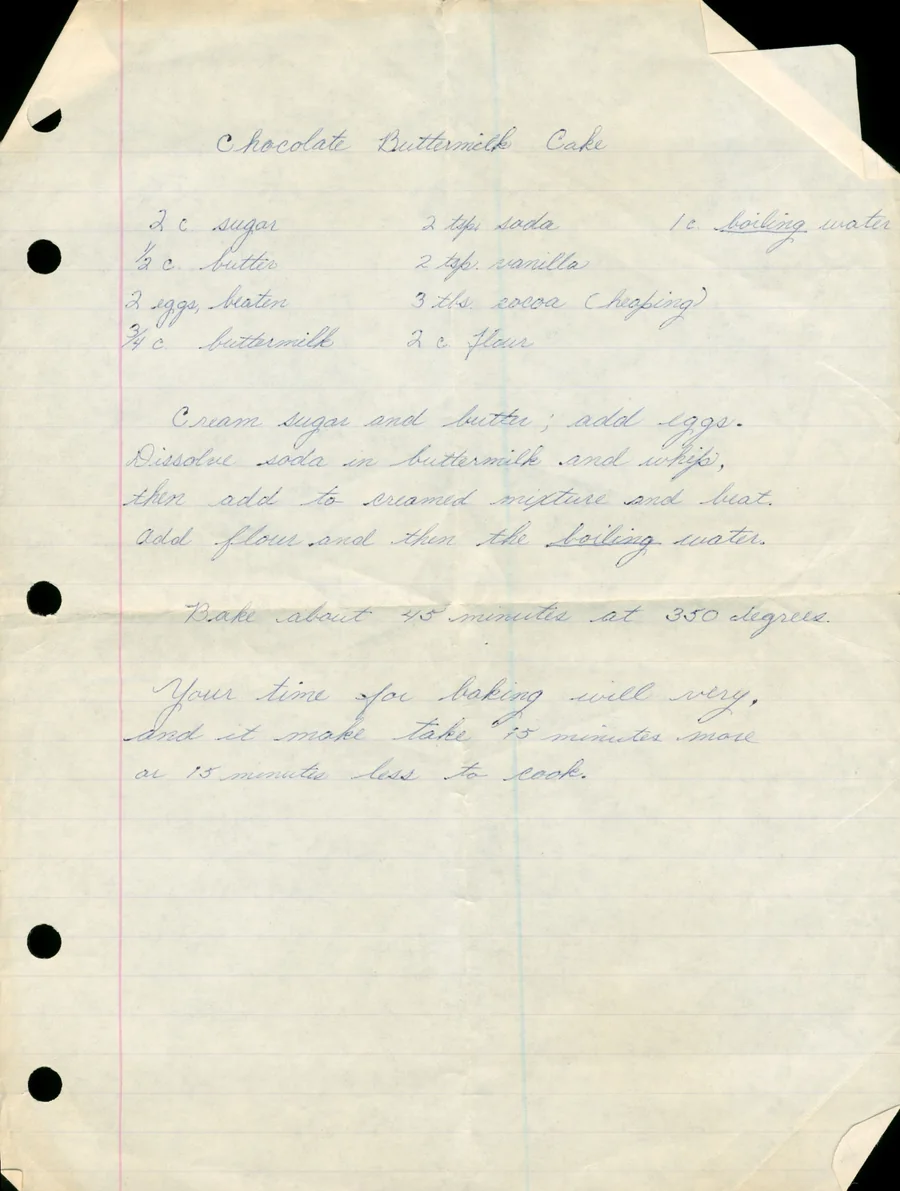 Chocolate Buttermilk Cake
2 c sugar 2 tsp. soda 1 c. boiling water
1/2 c. butter 2 tsp. vanilla
2 eggs, beaten 3 tbs. cocoa (heaping)
3/4 c. buttermilk 2 c flour
Cream sugar and butter; add eggs.
Dissolve soda in buttermilk and whip,
then add to creamed mixture and beat.
Add flour and then the boiling water.
Bake about 45 minutes at 350 degrees.
Your time for baking will very,
and it make take 15 minutes more
or 15 minutes less to cook.